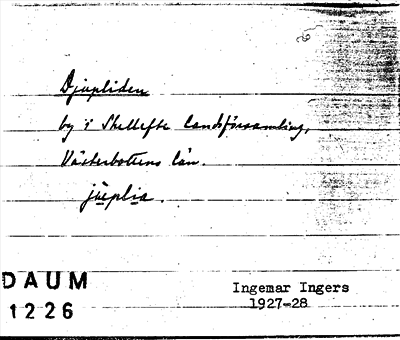 Djupliden
by i Skellefte landsförsamling,
Västerbottens län.
DAUM
1226
Ingemar Ingers
1927-28